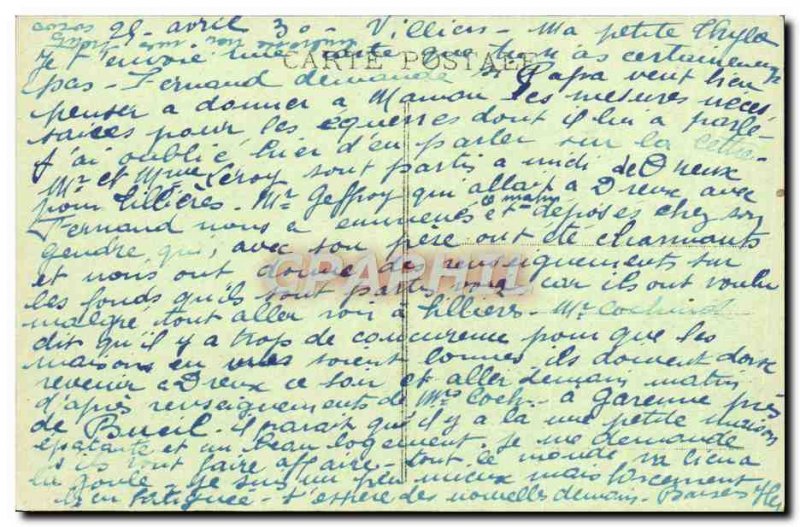 25 avril 30 - Villiers - Ma petite
Je t'envoie une carte que tu n'as certainement
CARTE POSTALE
pas - Fernand demande si Papa veut bien
penser à donner à Maman les mesures néces-
saires pour les équerres dont il lui a parlé -
J'ai oublié hier d'en parler sur la lettre -
Mr et Mme Leroy sont partis à midi de Dreux
pour Lillières - Mr Geffroy qui allait à Dreux avec
Fernand nous a emmenés ce matin et déposés chez son
gendre, qui, avec son père ont été charmants
et nous ont donné des renseignements sur
CPAPHIL
les fonds qu'ils sont partis voir, car ils ont voulu
malgré tout aller voir à Lillières - Mr
dit qu'il y a trop de concurrence pour que les
maisons en vues soient bonnes ils doivent donc
revenir à Dreux ce soir et aller demain matin
d'après renseignements de Mrs Coch. - à Garenne près
de Bueil - il paraît qu'il y a là une petite maison
épatante et un beau logement. Je me demande
s'ils vont faire affaire - tout le monde va bien à
la Joule - Je suis un peu mieux mais forcément
bien fatiguée - J'espère des nouvelles demain - Baisers